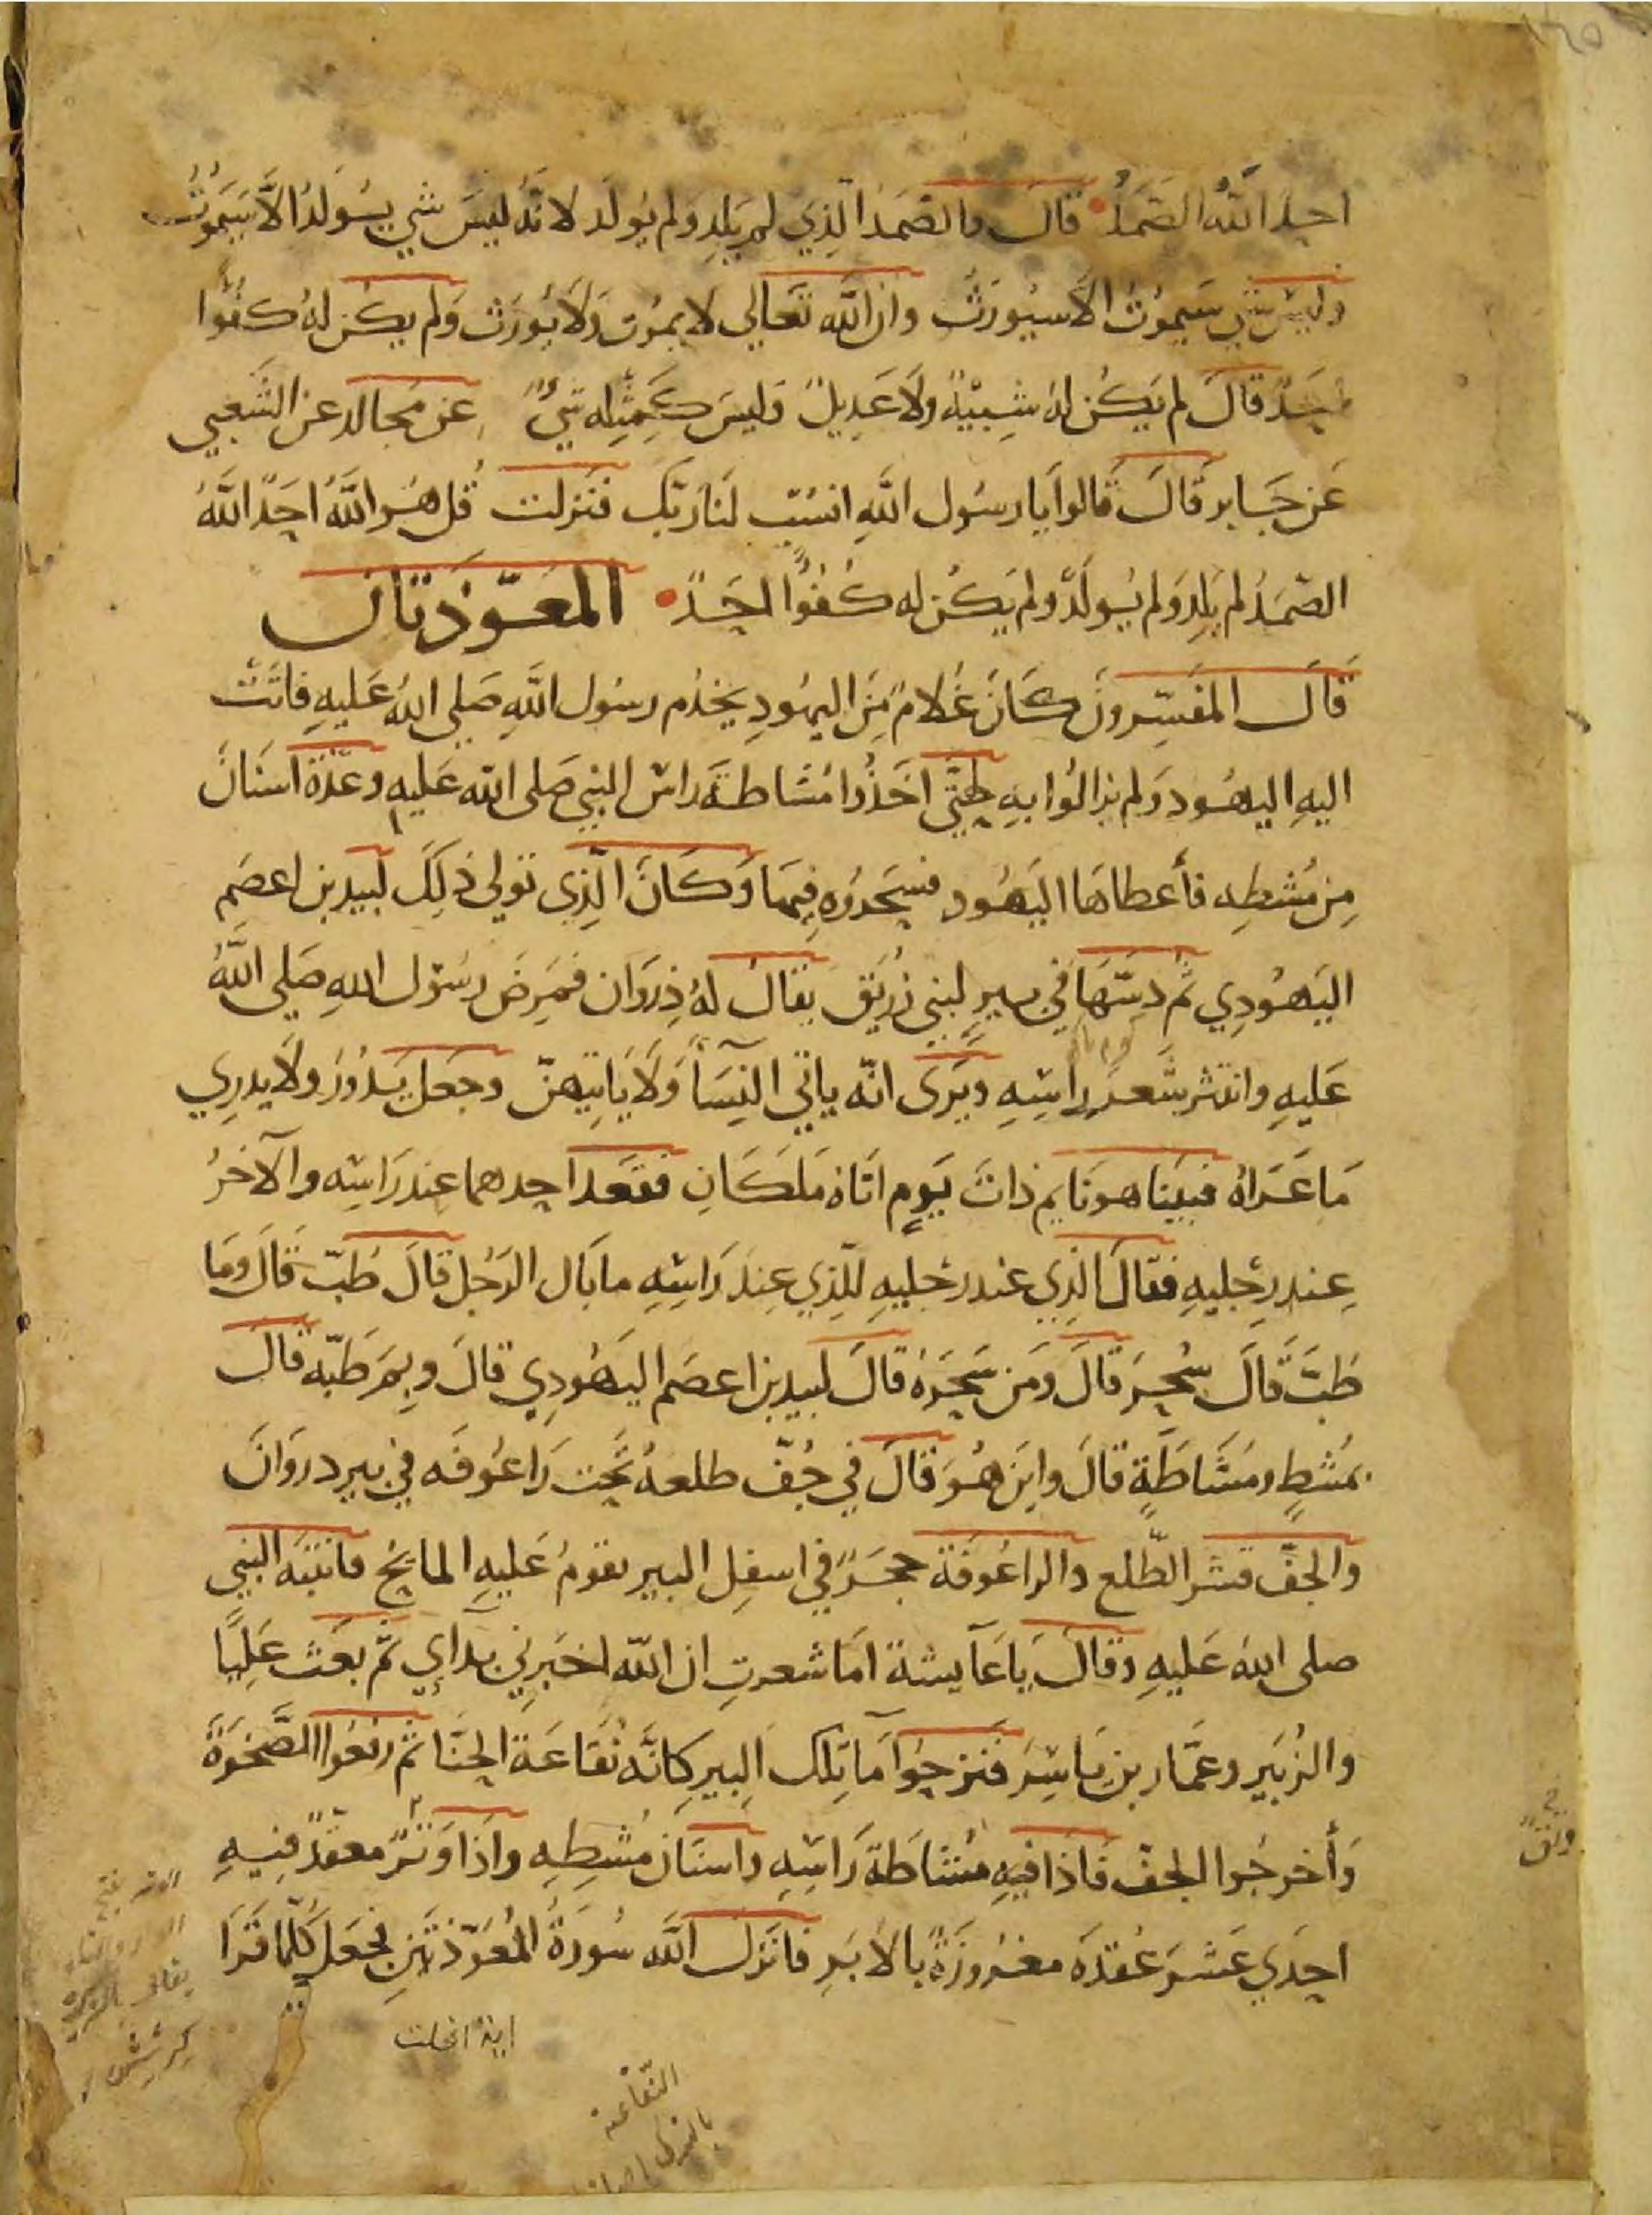 احدٌ اللهُ الصَّمَدُ قالَ والصَّمَدُ الَّذِي لم يَلِد ولم يُولَد لانَّهُ ليسَ شي يُولَدُ الَّا سَيَمُوتُ
وليس شي سَيموُتُ الّا سيُورَثُ وان الله تعَالي لا يمُوت وَلَا يُورَث وَلم يكُن لهُ كُفُؤًا
احَدٌ قالَ لم يَكُن لهُ شِبيْهٌ ولَا عَدِيلٌ وَليسَ كَمِثِله شيٌ عن مُجالد عن الشَعبي
عَن جَابر قَالَ قَالوا يا رسُول اللهِ انسُب لنَا ربَّك فنَزلت قُل هُو اللَّهُ احَدٌ اللَّهُ
الصَّمَدُ لم يَلِد وَلم يُولَدْ ولم يَكُن له كُفُؤًا احَدٌ المعَوّذتان
قَالَ المفَسِّرونَ كَانَ غُلامٌ مِنَ اليهُودِ يخدُم رسُول اللَّهِ صَلى اللهُ عَليهِ فاتَتْ
اليهِ اليهُود وَلم يزالُوا بهِ حتَّى اخَذُوا مُشاطةَ راس النبي صَلى الله عَليهِ وعدّة اسنَانٍ
مِن مُشطِهِ فأعطاهَا اليَهُود فسَحَروُه فِيهَا وَكَانَ الّذِي تولى ذلِكَ لبيد بن اعصَم
اليَهُودِي ثم دسَّهَا في بيرٍ لبَني زُرَيق يقالُ لهُ ذِروَان فمَرِضَ رسُول اللهِ صَلى اللَّهُ
عَليهِ وانتثر شَعرُ راسِهِ ويَرَى انّه ياتي النِسَآ وَلَا يَاتيهنّ وجَعلَ يَدُورُ ولَا يدرِي
مَا عَرَاهُ فبَينا هو نَايم ذاتَ يَومٍ اتَاهُ مَلَكَانِ فقعَد احدهما عند رَاسِه والآخرُ
عِند رِجْليهِ فقالَ الذِي عند رجْليهِ للّذِي عِندَ رَاسِهِ ما بَال الرَجُل قالَ طُبَّ قَالَ ومَا
طبَّ قَالَ سُحِرَ قَالَ وَمَن سَحَرَهُ قالَ لبيد بن اعصَم اليهُودِي قالَ وبِمَ طَبّه قالَ
بمُشطٍ ومُشَاطَةٍ قالَ واينَ هُوَ قالَ في جُفّ طلعهٍ تَحت رَاعُوفَه في بير ذروَانَ
والجفّ قشر الطّلع والراعُوفَة حجَرٌ في اسفِل البير يقومُ عَليهِ المايحُ فانتبَه النبي
صلى اللهُ عَليهِ وقالَ يَا عَآيشة امَا شعرتِ ان اللّه اخبَرِني بدآي ثم بعَث عَلِيًّا
والزُبَير وعَمَّار بن يَاسِرَ فنَزحُوا مآ تِلك البير كانّه نُقَاعَة الحِنَّا ثم رفعُوا الصَّخرَةَ
وَأخرجُوا الجفّ فَاذا فيهِ مُشَاطَة رَاسِهِ واسنَان مُشطِهِ واذا وَتَرٌ معقدٌ فيهِ
احِدَي عَشرَ عُقدَه مغرُوزَةٌ بالابَرِ فانَزلَ اللَّه سُورَةَ المُعوَّذتَينِ فجَعلَ كُلّما قَرَا
ايةً انحلت
النُّقاعَة